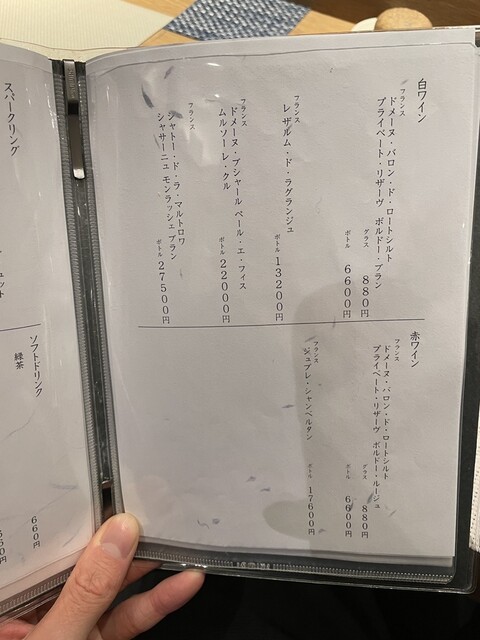 白ワイン
フランス
ドメーヌ・バロン・ド・ロートシルト
プライベート・リザーヴ ボルドー・ブラン
グラス 880円
ボトル 6600円
フランス
レザルム・ド・ラグランジュ
ボトル 13200円
フランス
ドメーヌ・ブシャール ペール・エ・フィス
ムルソー レ・クル
ボトル 22000円
フランス
シャトー・ド・ラ・マルトロワ
シャサーニュ モンラッシェ ブラン
ボトル 27500円
赤ワイン
フランス
ドメーヌ・バロン・ド・ロートシルト
プライベート・リザーヴ ボルドー・ルージュ
グラス 880円
ボトル 6600円
フランス
ジュブレ・シャンベルタン
ボトル 17600円
スパークリング
ソフトドリンク
緑茶
660円